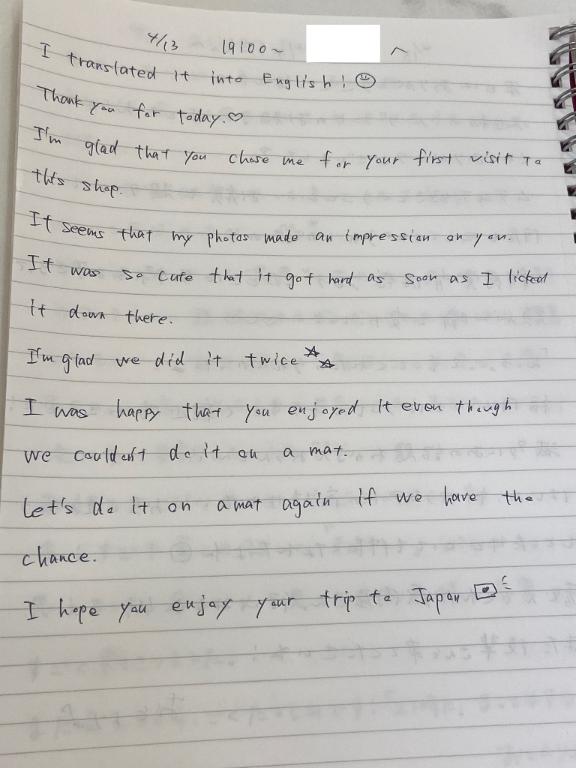 4/13 19:00~ へ
I translated it into English! ☺
Thank you for today.♡
I'm glad that you chose me for your first visit to
this shop.
It seems that my photos made an impression on you.
It was so cute that it got hard as soon as I licked
it down there.
I'm glad we did it twice ☆☆
I was happy that you enjoyed it even though
we couldn't do it on a mat.
Let's do it on a mat again if we have the
chance.
I hope you enjoy your trip to Japan